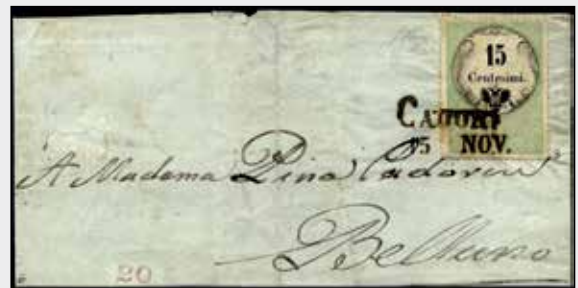 15
Centesimi.
CADORE
15 NOV.
A Madama Pina Cadorin
Belluno
20